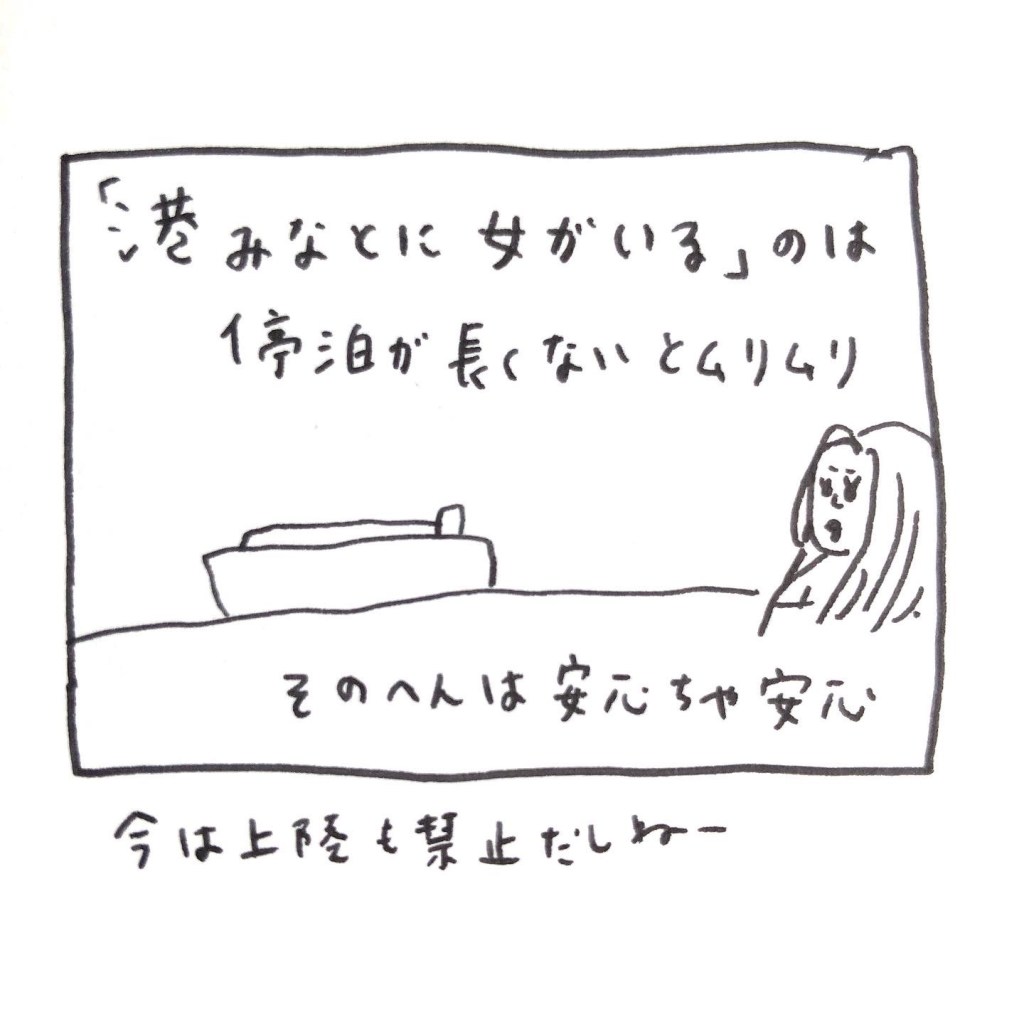 「港みなとに女がいる」のは
停泊が長くないとムリムリ
そのへんは安心ちゃ安心
今は上陸も禁止だしねー